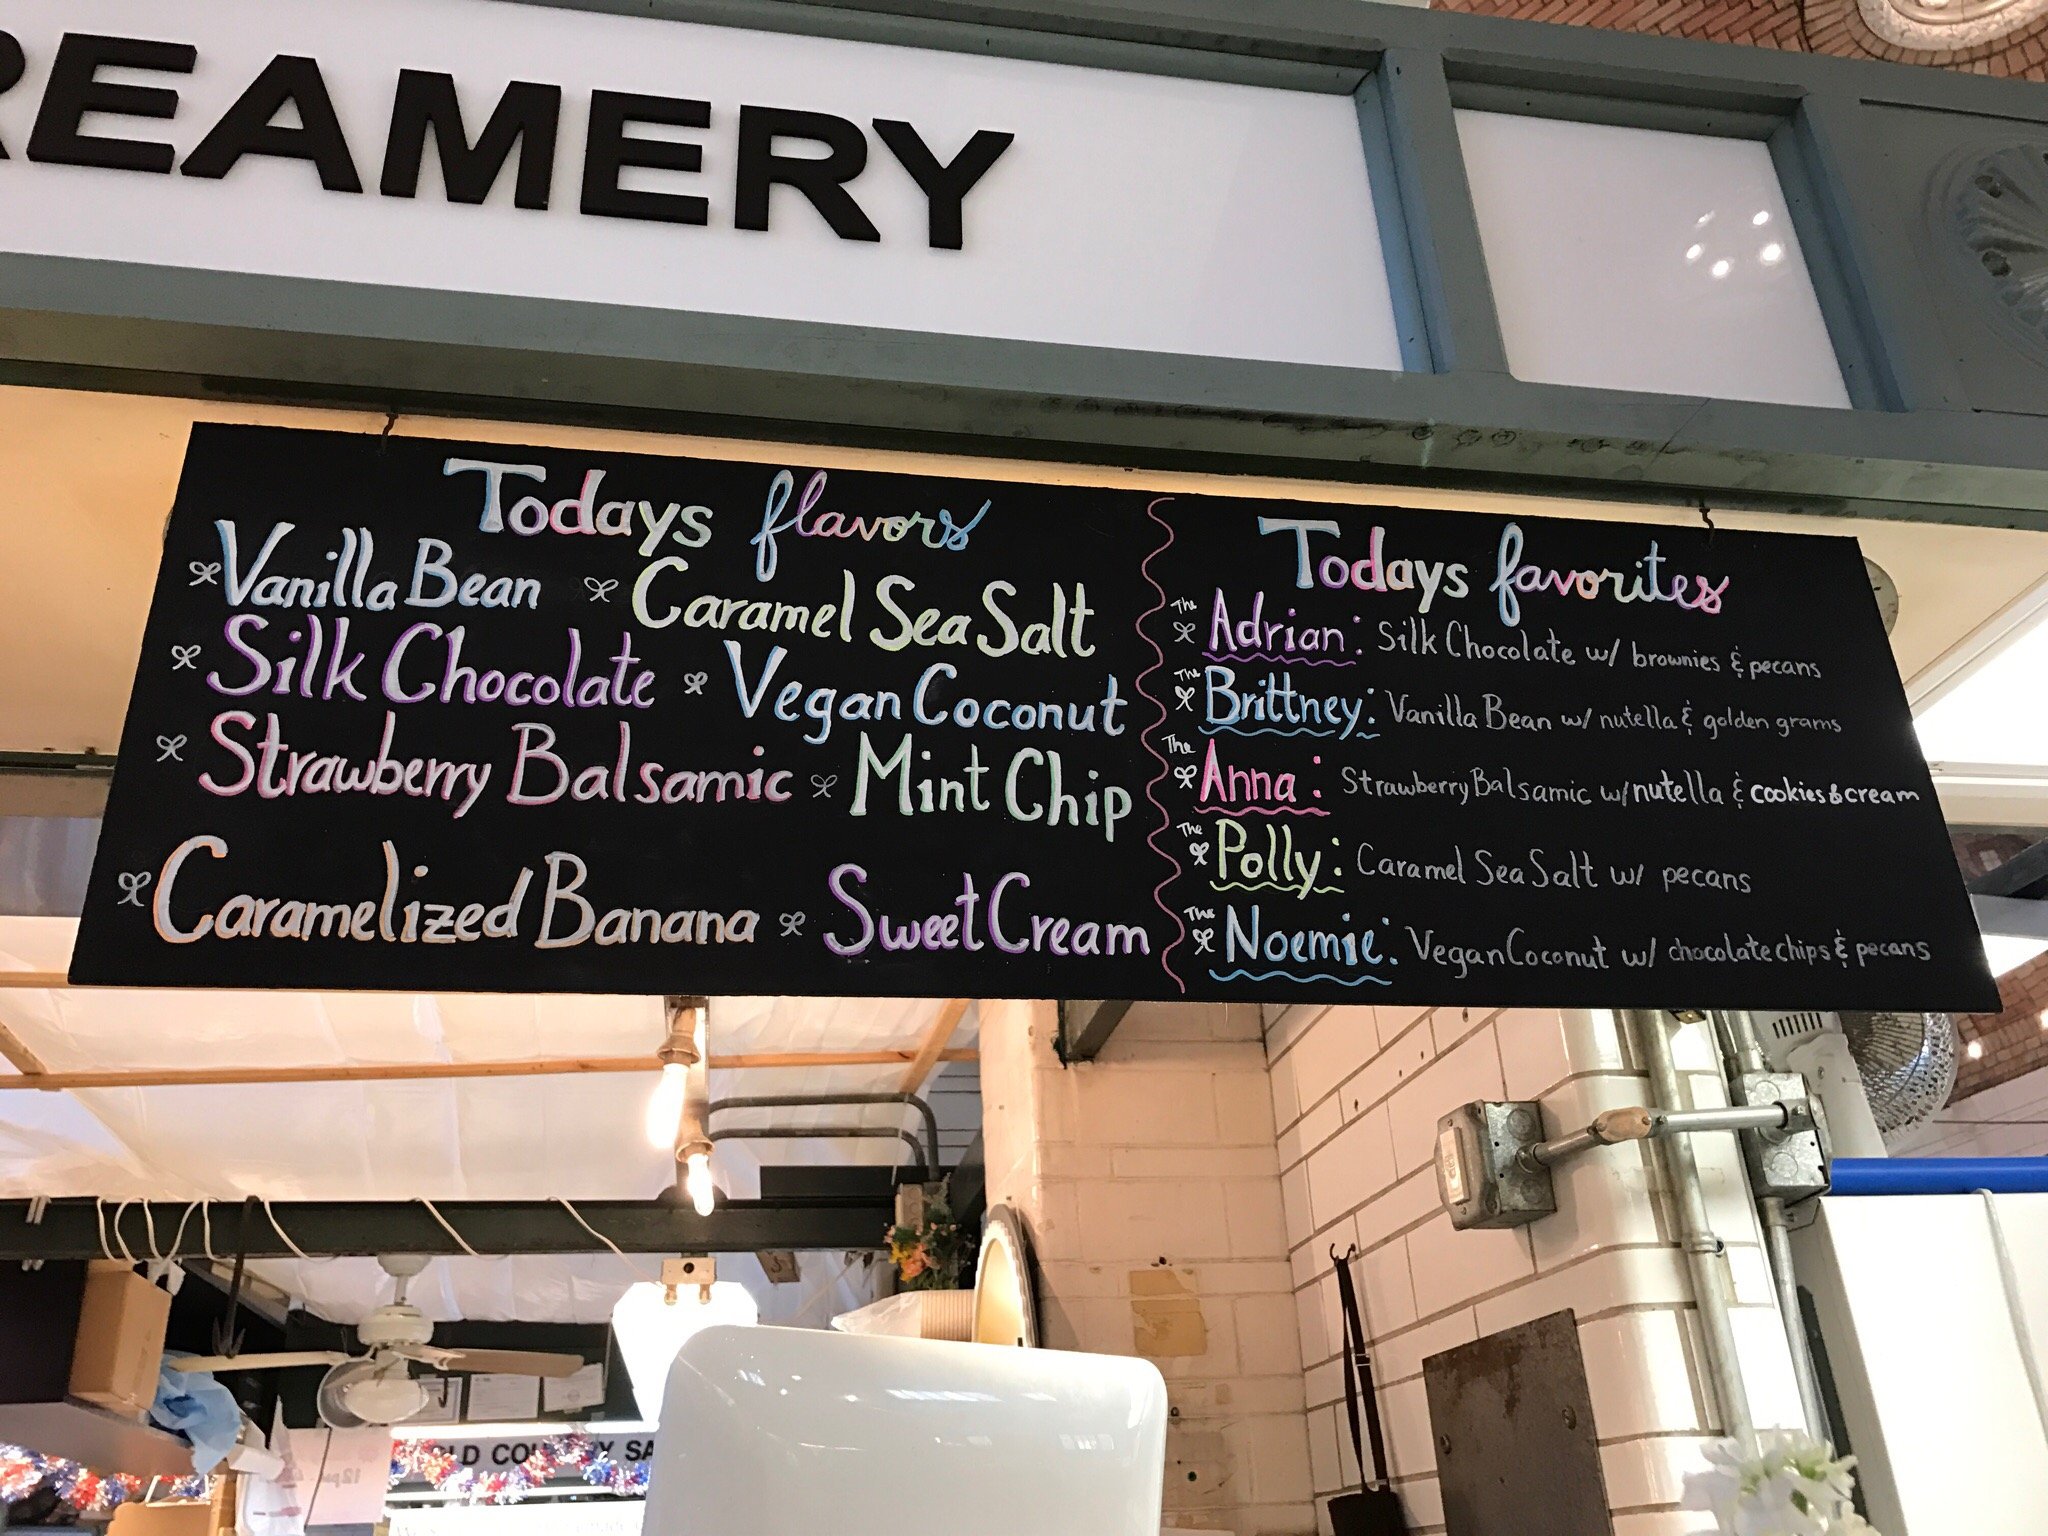 REAMERY
Todays flavors
Vanilla Bean Caramel Sea Salt
Silk Chocolate Vegan Coconut
Strawberry Balsamic Mint Chip
Caramelized Banana Sweet Cream
Todays favorites
The Adrian: Silk Chocolate w/ brownies & pecans
The Brittney: Vanilla Bean w/ nutella & golden grams
The Anna: Strawberry Balsamic w/ nutella & cookies & cream
The Polly: Caramel Sea Salt w/ pecans
The Noemie: Vegan Coconut w/ chocolate chips & pecans